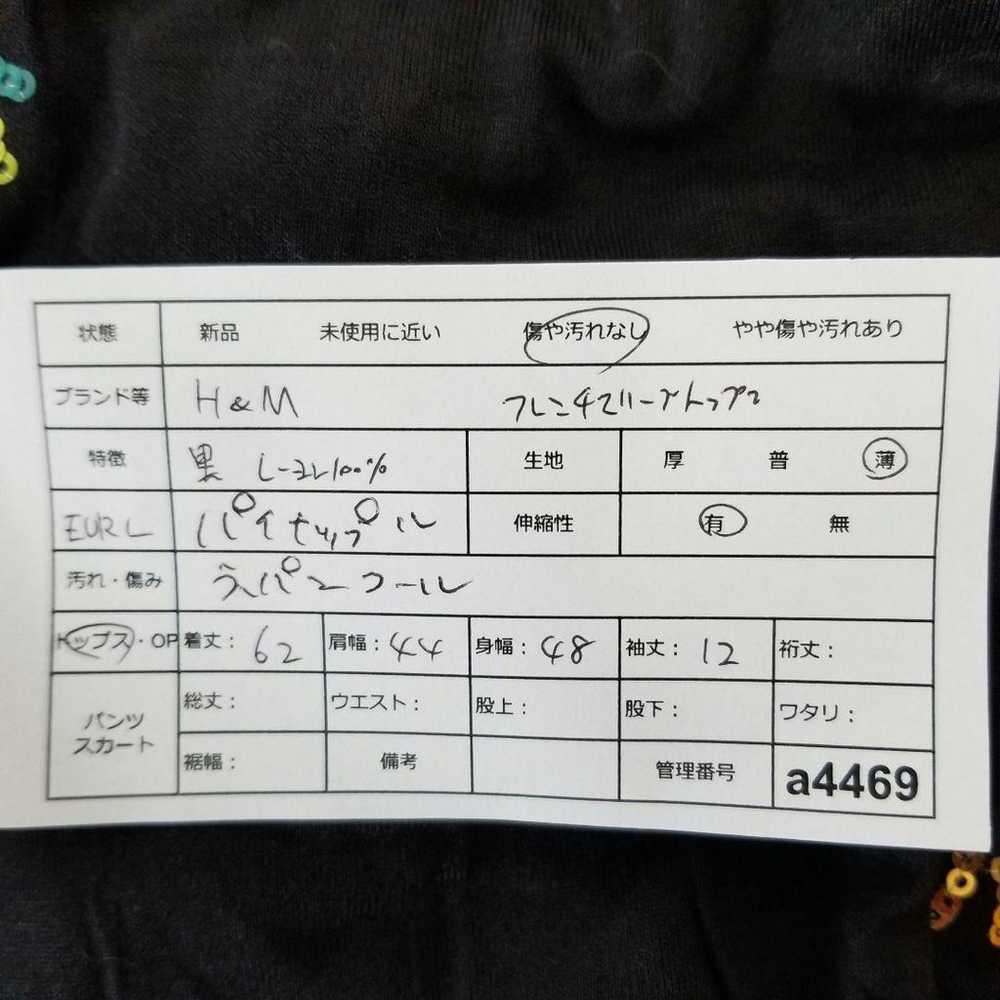 状態 新品 未使用に近い 傷や汚れなし やや傷や汚れあり
ブランド等 H&M フレンチスリーブトップス
特徴 黒 レーヨン100% 生地 厚 普 薄
EUR L パイナップル 伸縮性 有 無
汚れ・傷み スパンコール
トップス・OP 着丈: 62 肩幅: 44 身幅: 48 袖丈: 12 裄丈:
パンツ スカート 総丈: ウエスト: 股上: 股下: ワタリ:
裾幅: 備考 管理番号 a4469